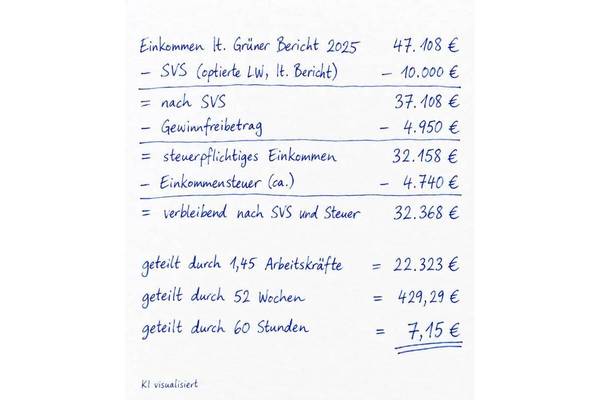 Einkommen lt. Grüner Bericht 2025 47.108 €
– SVS (optierte LW, lt. Bericht) – 10.000 €
= nach SVS 37.108 €
– Gewinnfreibetrag – 4.950 €
= steuerpflichtiges Einkommen 32.158 €
– Einkommensteuer (ca.) – 4.740 €
= verbleibend nach SVS und Steuer 32.368 €
geteilt durch 1,45 Arbeitskräfte = 22.323 €
geteilt durch 52 Wochen = 429,29 €
geteilt durch 60 Stunden = 7,15 €
KI visualisiert